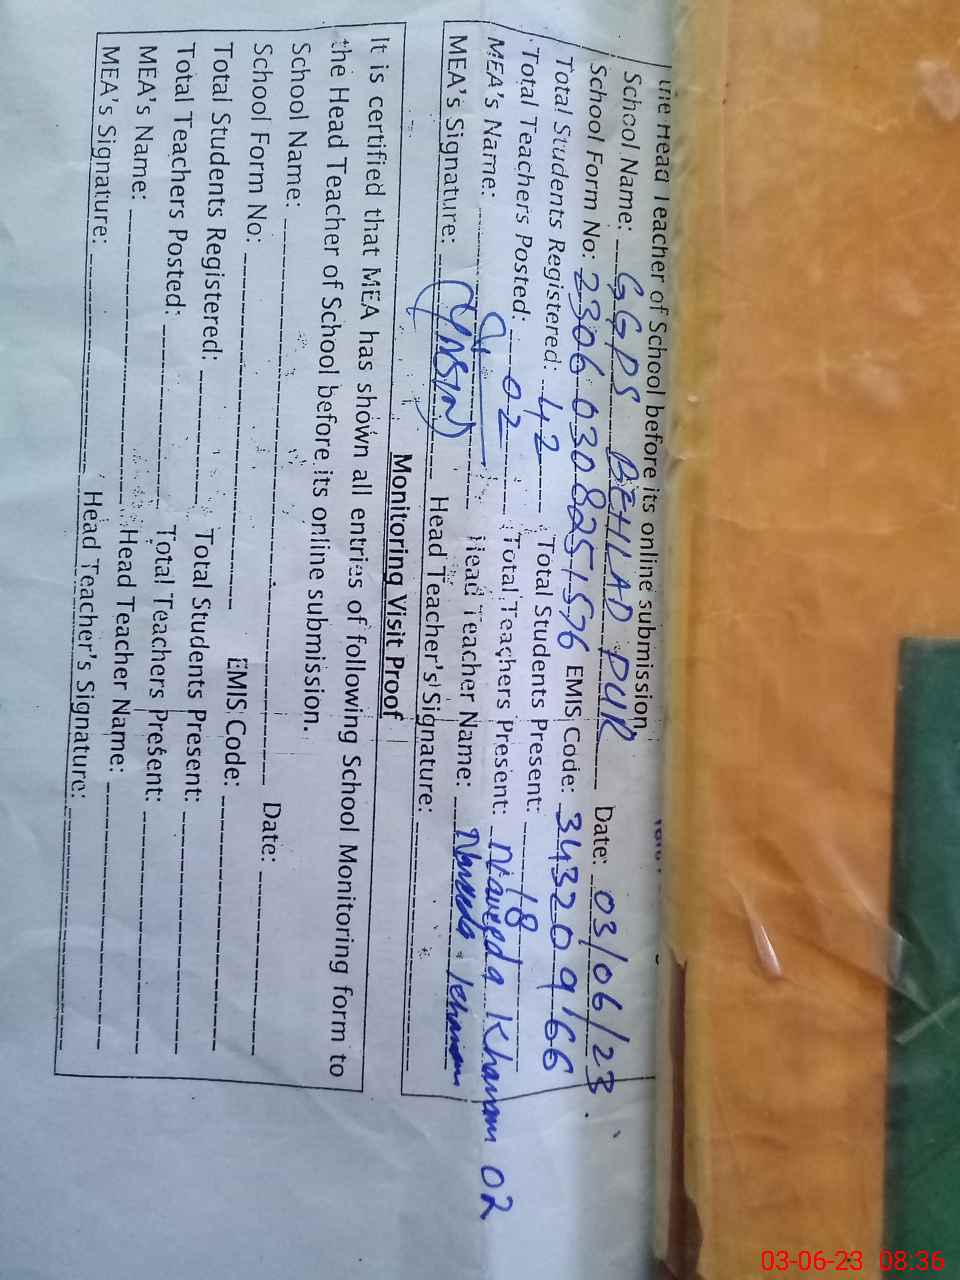 the Head Teacher of School before its online submission.
School Name: GGPS BEHLAD PUR Date: 03/06/23.
School Form No: 23060308251576 EMIS Code: 34320966
Total Students Registered: 42 Total Students Present: 18
Total Teachers Posted: 02 Total Teachers Present: Naveeda Khanam 02
MEA's Name: Head Teacher Name: Naveeda Khanam
MEA's Signature: (YASIN) Head Teacher's Signature:
Monitoring Visit Proof
It is certified that MEA has shown all entries of following School Monitoring form to
the Head Teacher of School before its online submission.
School Name: Date:
School Form No: EMIS Code:
Total Students Registered: Total Students Present:
Total Teachers Posted: Total Teachers Present:
MEA's Name: Head Teacher Name:
MEA's Signature: Head Teacher's Signature:
03-06-23 08:36